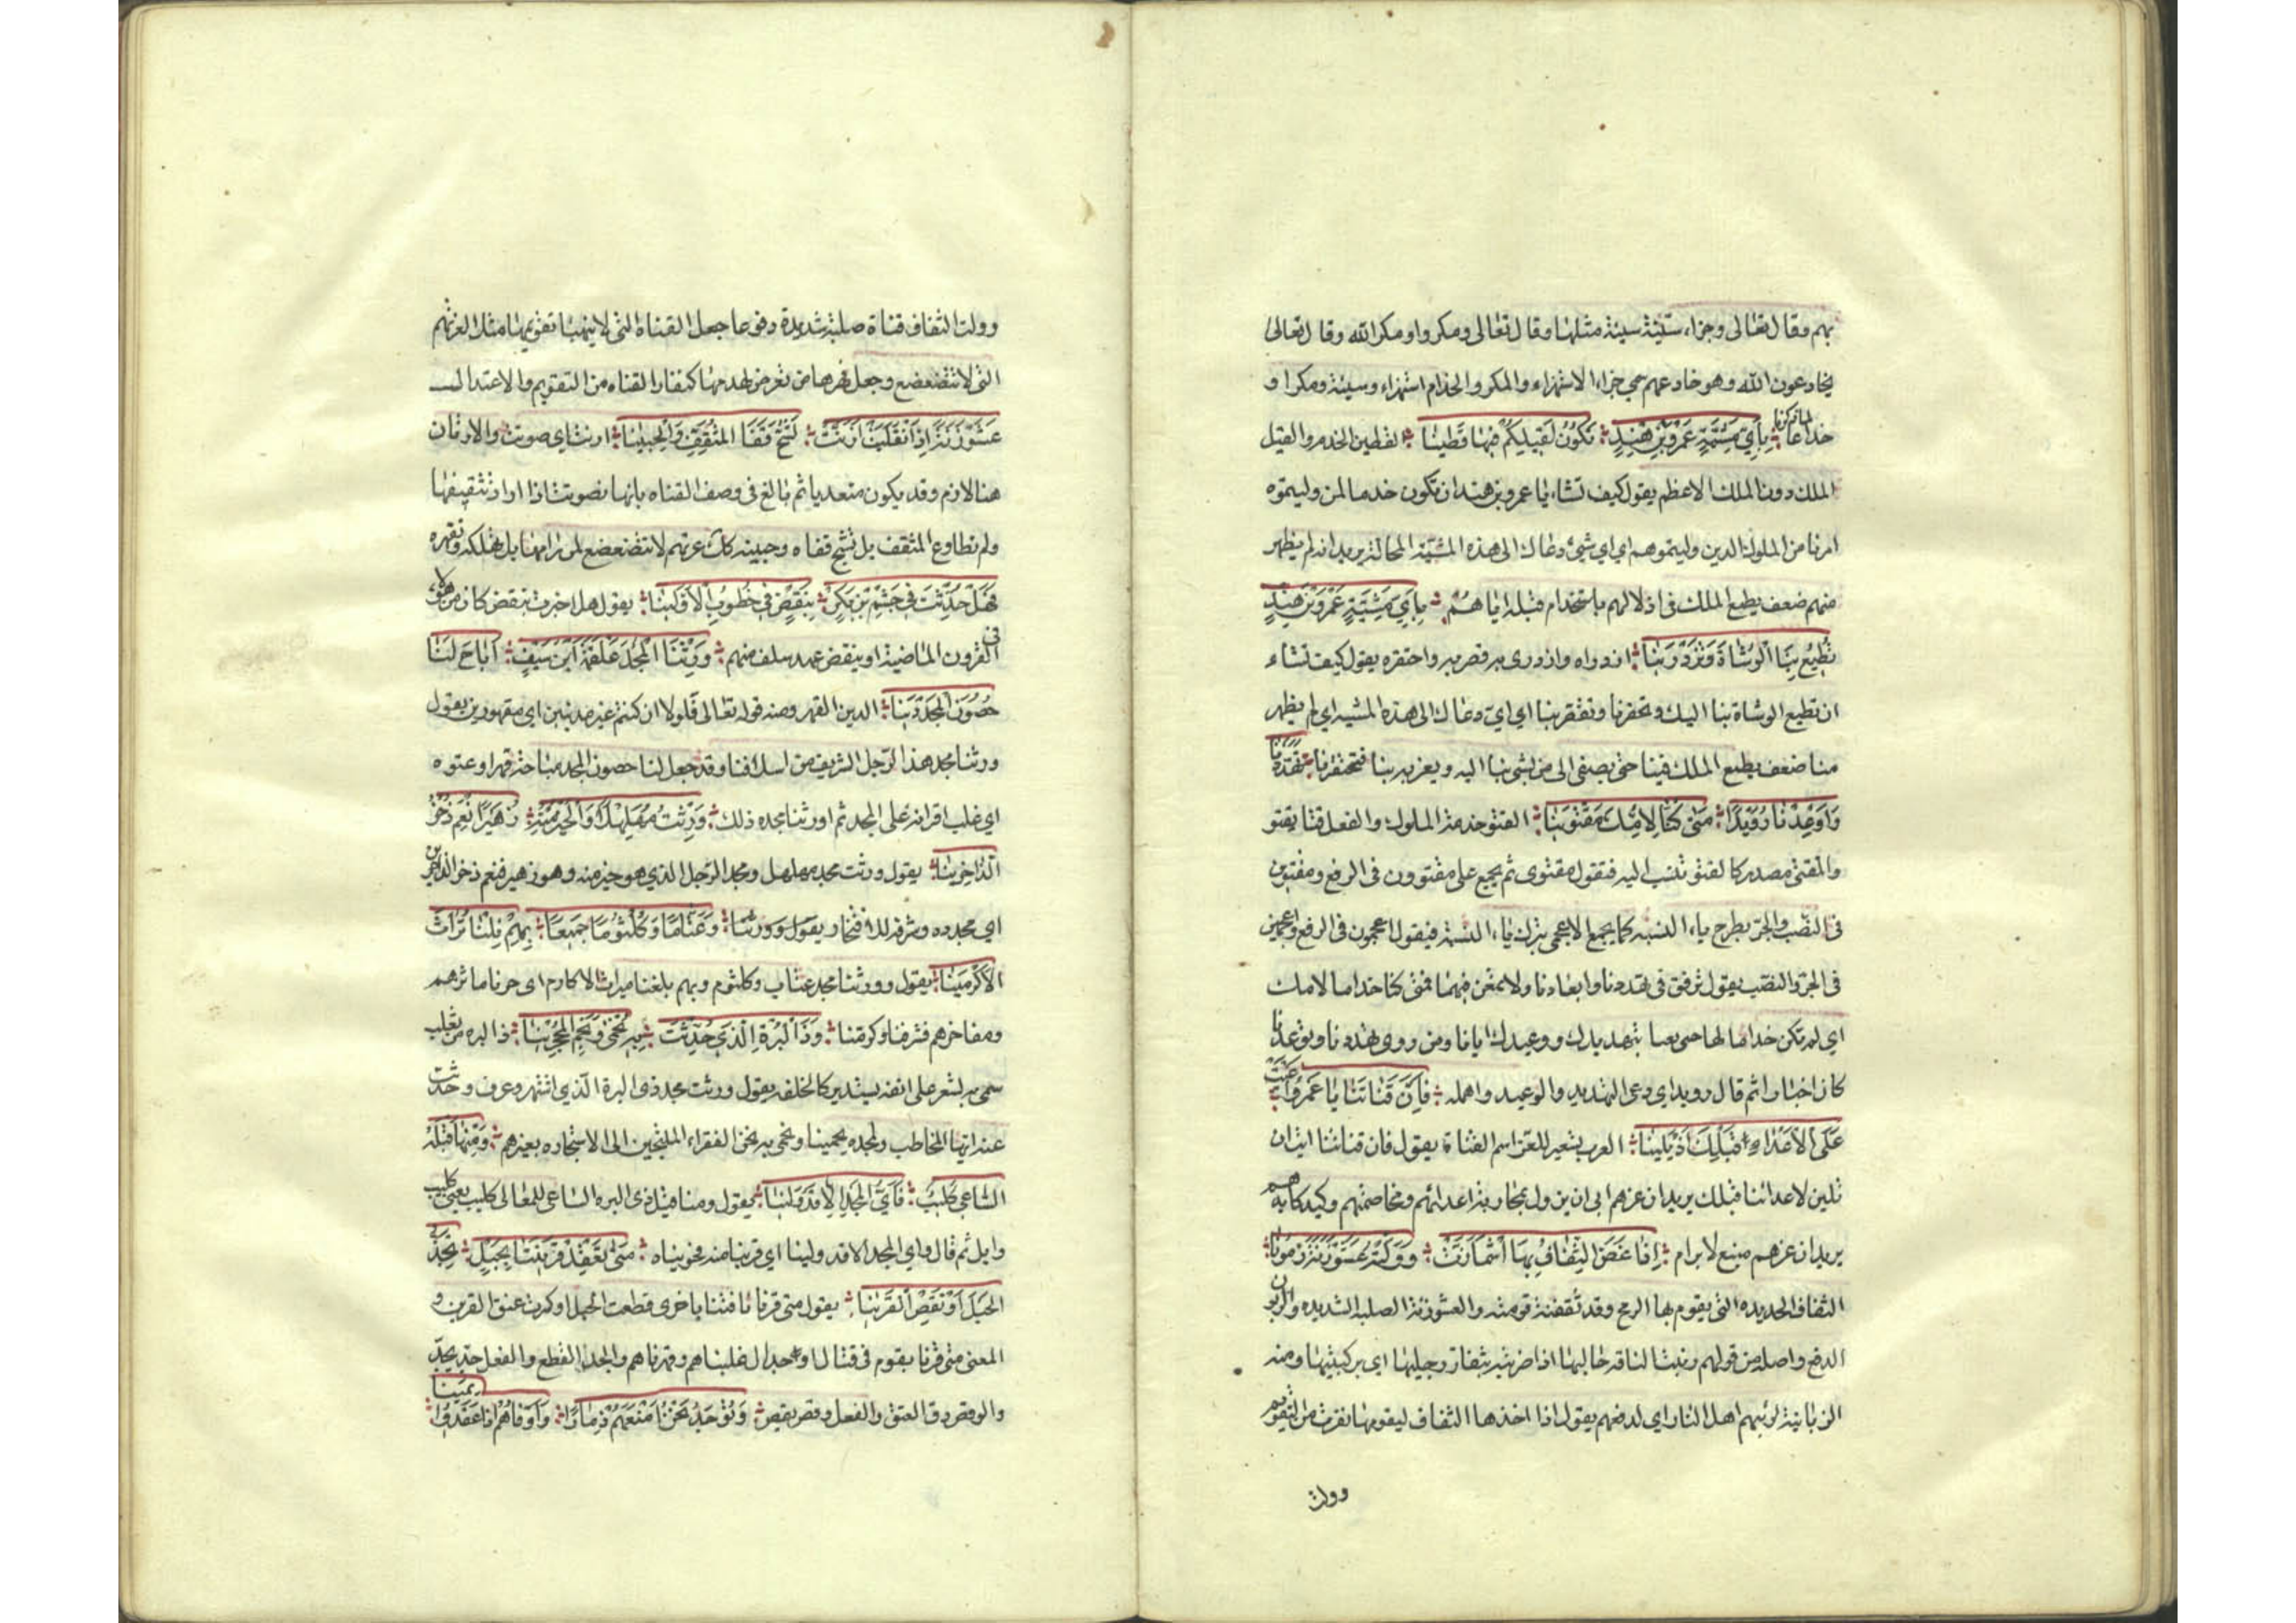 بهم وقال تعالى وجزاء سيئة سيئة مثلها وقال تعالى ومكروا ومكر الله وقال تعالى
يخادعون الله وهو خادعهم سمي جزاء الاستهزاء والمكر والخداع استهزاء وسيئة ومكرا و
خداعا لما ذكرنا بِأَيِّ مَشِيَّةٍ عَمْرَو بْنَ هِنْدٍ نَكُونُ لِقَيْلِكُمْ فِيهَا قَطِينَا القطين الخدم والقيل
الملك دون الملك الاعظم يقول كيف تشاء يا عمرو بن هند ان نكون خدما لمن وليتموه
امرنا من الملوك الذين وليتموهم اي اي شيء دعاك الى هذه المشيّة المحالة يريد انه لم يظهر
منهم ضعف يطمع الملك في اذلالهم باستخدام قبله اياهم بِأَيِّ مَشِيَّةٍ عَمْرَو بْنَ هِنْدٍ
تُطِيعُ بِنَا الْوُشَاةَ وَتَزْدَرِينَا ازدراه وازدرى به قصر به واحتقره يقول كيف تشاء
ان تطيع الوشاة بنا اليك وتحقرنا وتقصر بنا اي اي دعاك الى هذه المشيه اي لم يظهر
منا ضعف يطمع الملك فينا حتى يصغى الى من يشي بنا اليه ويغريه بنا فتحتقرنا تَهَدَّدْنَا
وَاَوْعِدْنَا رُوَيْدًا مَتى كُنَّا لِاُمِّكَ مَقْتَوِينَا القتو خدمة الملوك والفعل قتا يقتو
والمقتى مصدر كالقتو تنسب اليه فتقول مقتوى ثم يجمع على مقتوون في الرفع ومقتوين
في النصب والجر بطرح ياء النسبه كما يجمع الاعجمي بترك ياء النسبة فيقول اعجمون في الرفع واعجمين
في الجر والنصب يقول ترفق في تهددنا وابعادنا ولا تمعن فيهما فمتى كنا خداما لامك
اي لم نكن خداما لها حتى نعبا بتهديدك ووعيدك ايانا ومن روى تهددنا وتوعدنا
كان اخبارا ثم قال رويدا اي دعي التهديد والوعيد وامهله فَاِنَّ قَنَاتَنَا يَا عَمْرُو اَعْيَتْ
عَلَى الْاَعْدَاءِ قَبْلَكَ اَنْ تَلِينَا العرب تستعير للعز اسم القناة يقول فان قناتنا ابت ان
تلين لاعدائنا قبلك يريد ان عزهم ابى ان يزول بمحاربة اعدائهم ومخاصمتهم وكيدكايدهم
يريد ان عزهم منيع لا يرام اِذَا عَضَّ الثِّقَافُ بِهَا اشْمَأَزَّتْ وَوَلَّتْهُ عَشَوْزَنَةً زَبُونَا
الثقاف الحديده التي يقوم بها الرمح وقد ثقفته قومته والعشوزنة الصلبة الشديده والزبون
الدفع واصله من قولهم زبنت الناقة حالبها اذا ضربته بثفنات رجليها اي بركبتيها ومنه
الزبانية لزبنهم اهل النار اي لدفعهم يقول اذا اخذها الثقاف ليقومها نفرت من التقويم
وولت
وولت الثقاف قناة صلبة شديدة دفوعا جعل القناة التي لا يتهيا تقويمها مثلا لعزتهم
التي لا تتضعضع وجعل قهرها من تعرض لهدمها كنفار القناه من التقويم والاعتدال
عَشَوْزَنَةً اِذَا انْقَلَبَتْ اَرَنَّتْ تَشُجُّ قَفَا الْمُثَقِّفِ وَالْجَبِينَا ارنت اي صوتت والارنان
هنا لازم وقد يكون متعديا ثم بالغ في وصف القناه بانها تصوت اذا اراد تثقيفها
ولم تطاوع المثقف بل تشج قفاه وجبينه كذلك عزتهم لا تتضعضع لمن رامها بل تهلكه وتقهره
فَهَلْ حُدِّثْتَ فِي جُشَمِ بْنِ بَكْرٍ بِنَقْصٍ فِي خُطُوبِ الْاَوَّلِينَا يقول هل اخبرت بنقض كان من هؤلاء
في القرون الماضية او بنقض عهد سلف منهم وَرِثْنَا الْمَجْدَ عَلْقَمَةَ ابْنِ سَيْفٍ اَبَاحَ لَنَا
حُصُونَ الْمَجْدِ دِينَا الدين القهر ومنه قوله تعالى فلولا ان كنتم غير مدينين اي مقهورين يقول
ورثنا مجد هذا الرجل الشريف من اسلافنا وقد جعل لنا حصون المجد مباحة قهرا وعنوه
اي غلب اقرانه على المجد ثم اورثنا مجده ذلك وَرِثْتُ مُهَلْهِلًا وَالْخَيْرَ مِنْهُ زُهَيْرًا نِعْمَ ذُخْرُ
الذَّاخِرِينَا يقول ورثت مجد مهلهل ومجد الرجل الذي هو خير منه وهو زهير فنعم ذخر الذاخرين
اي مجده وشرفه للافتخار يقول وورثنا وَعَتَّابًا وَكُلْثُومًا جَمِيعًا بِهِمْ نِلْنَا تُرَاثَ
الْاَكْرَمِينَا يقول وورثنا مجد عتاب وكلثوم وبهم بلغنا ميراث الاكارم اى حزنا ماثرهم
ومفاخرهم فشرفنا وكرمنا وَذَا الْبُرَةِ الَّذِي حُدِّثْتَ بِهِ نُحْمَى وَنَحْمِي الْمُحْجَرِينَا ذا البره من تغلب
سمى به لشعر على انفه يستدير كالحلقه يقول ورثت مجد ذى البرة الذي اشتهر وعرف وحدثت
عنه ايها المخاطب ولمجده يحمينا ونحمي به نحن الفقراء الملتجين الى الاستجاره بغيرهم وَمِنَّا قَبْلَهُ
السَّاعِي كُلَيْبٌ فَاَيُّ الْمَجْدِ اِلَّا قَدْ وَلِينَا يقول ومنا قبل ذى البره الساعى للمعالى كليب يعني كليب
وايل ثم قال واي المجد الا قد ولينا اي قربنا منه فحويناه مَتَى نَعْقِدْ قَرِينَتَنَا بِحَبْلٍ نَجُذُّ
الْحَبْلَ اَوْ نَقِصُ الْقَرِينَا يقول متى قرنا ناقتنا باخرى قطعت الحبل او كسرت عنق القرين و
المعنى متى قرنا بقوم في قتال او جدال غلبناهم وقهرناهم والجذ القطع والفعل جذ يجذ
والوقص دق العنق والفعل وقص يقص وَنُوجَدُ نَحْنُ اَمْنَعَهُمْ ذِمَارًا وَاَوْفَاهُمْ اِذَا عَقَدُوا يَمِينَا